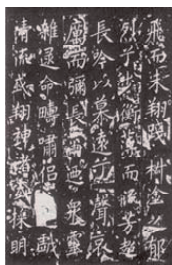 飛而未翔踐椒塗之郁
烈步蘅薄而流芳超
長吟以慕遠兮聲哀
厲而彌長爾迺眾靈
雜遝命疇嘯侶或戲
清流或翔神渚或採明